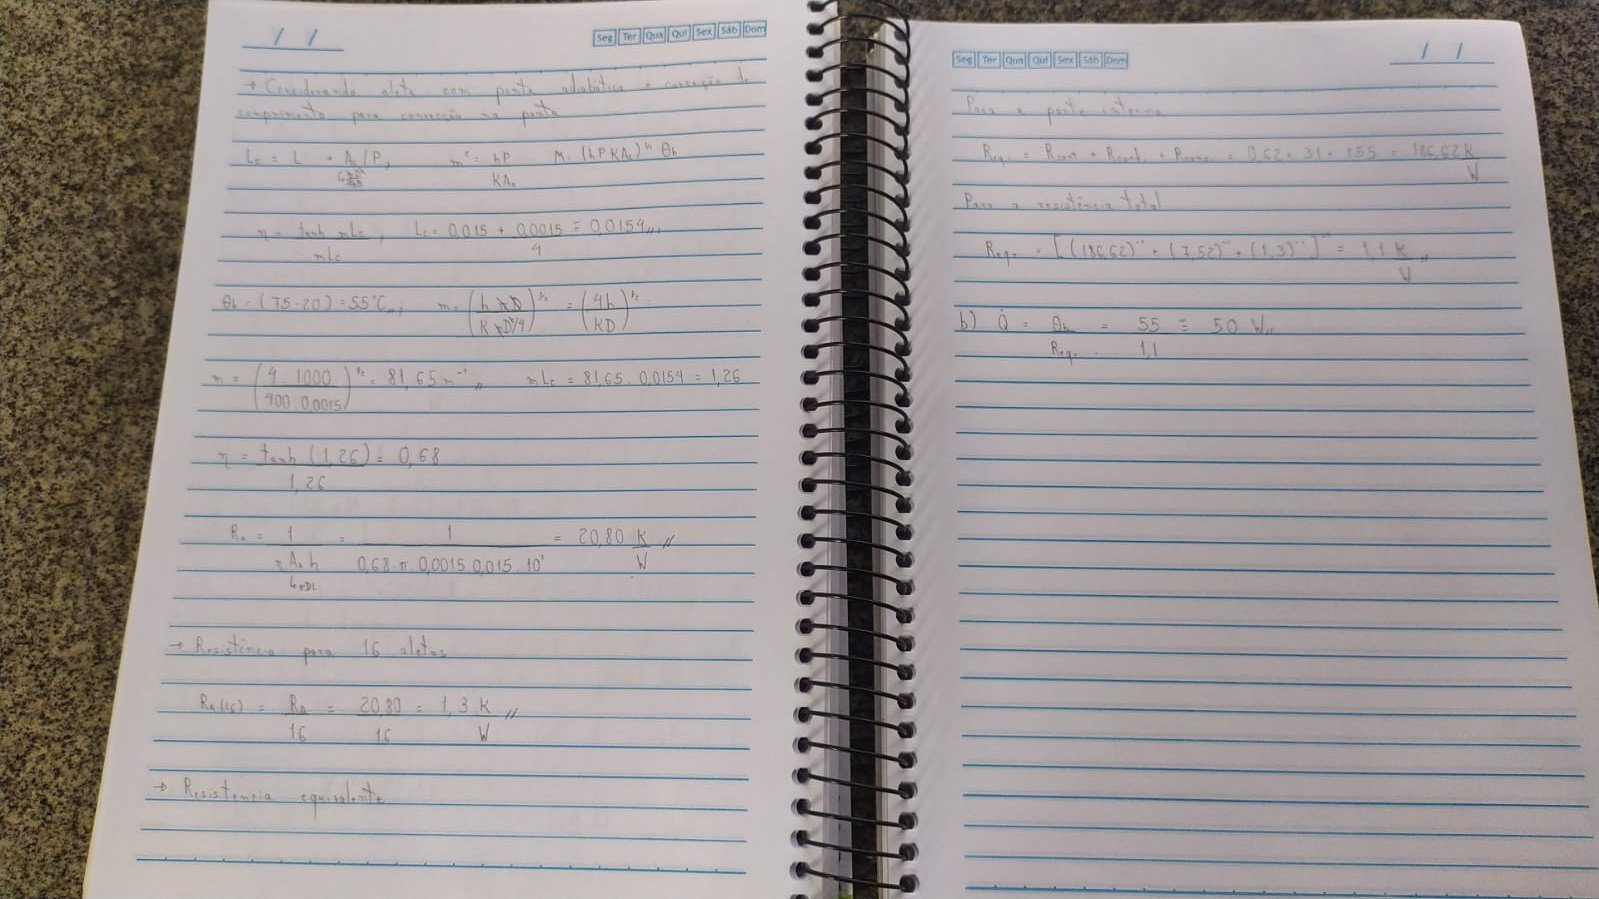 / /
Seg Ter Qua Qui Sex Sáb Dom
→ Considerando aleta com ponta adiabática e correção de
comprimento para convecção na ponta
Lc = L + Ac/P, m² = hP/KAc M = (hPKAc)^½ θb
η = tanh mLc / mLc, Lc = 0,015 + 0,0015/4 = 0,0154
θb = (75-20) = 55°C, m = (h πD / K πD²/4)^½ = (4h / KD)^½
m = (4 . 1000 / 400 . 0,0015)^½ = 81,65 m⁻¹ mLc = 81,65 . 0,0154 = 1,26
η = tanh (1,26) / 1,26 = 0,68
Ra = 1 / η Aa h = 1 / 0,68 . π . 0,0015 . 0,015 . 10³ = 20,80 K/W
↳ πDL
→ Resistência para 16 aletas
Ra(16) = Ra/16 = 20,80/16 = 1,3 K/W
→ Resistencia equivalente
Seg Ter Qua Qui Sex Sáb Dom
/ /
Para a parte interna
Req. = Rcont + Rcond. + Rconv. = 0,62 + 31 + 155 = 186,62 K/W
Para a resistência total
Req. = [(186,62)⁻¹ + (7,52)⁻¹ + (1,3)⁻¹]⁻¹ = 1,1 K/W
b) Q̇ = θb / Req. = 55 / 1,1 = 50 W